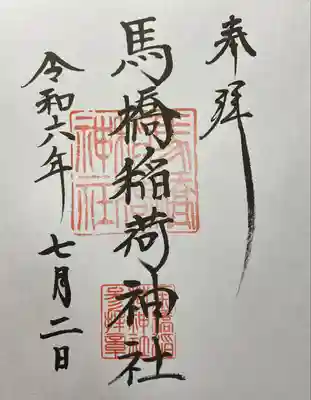 奉拝
馬橋稲荷神社
令和六年
七月二日